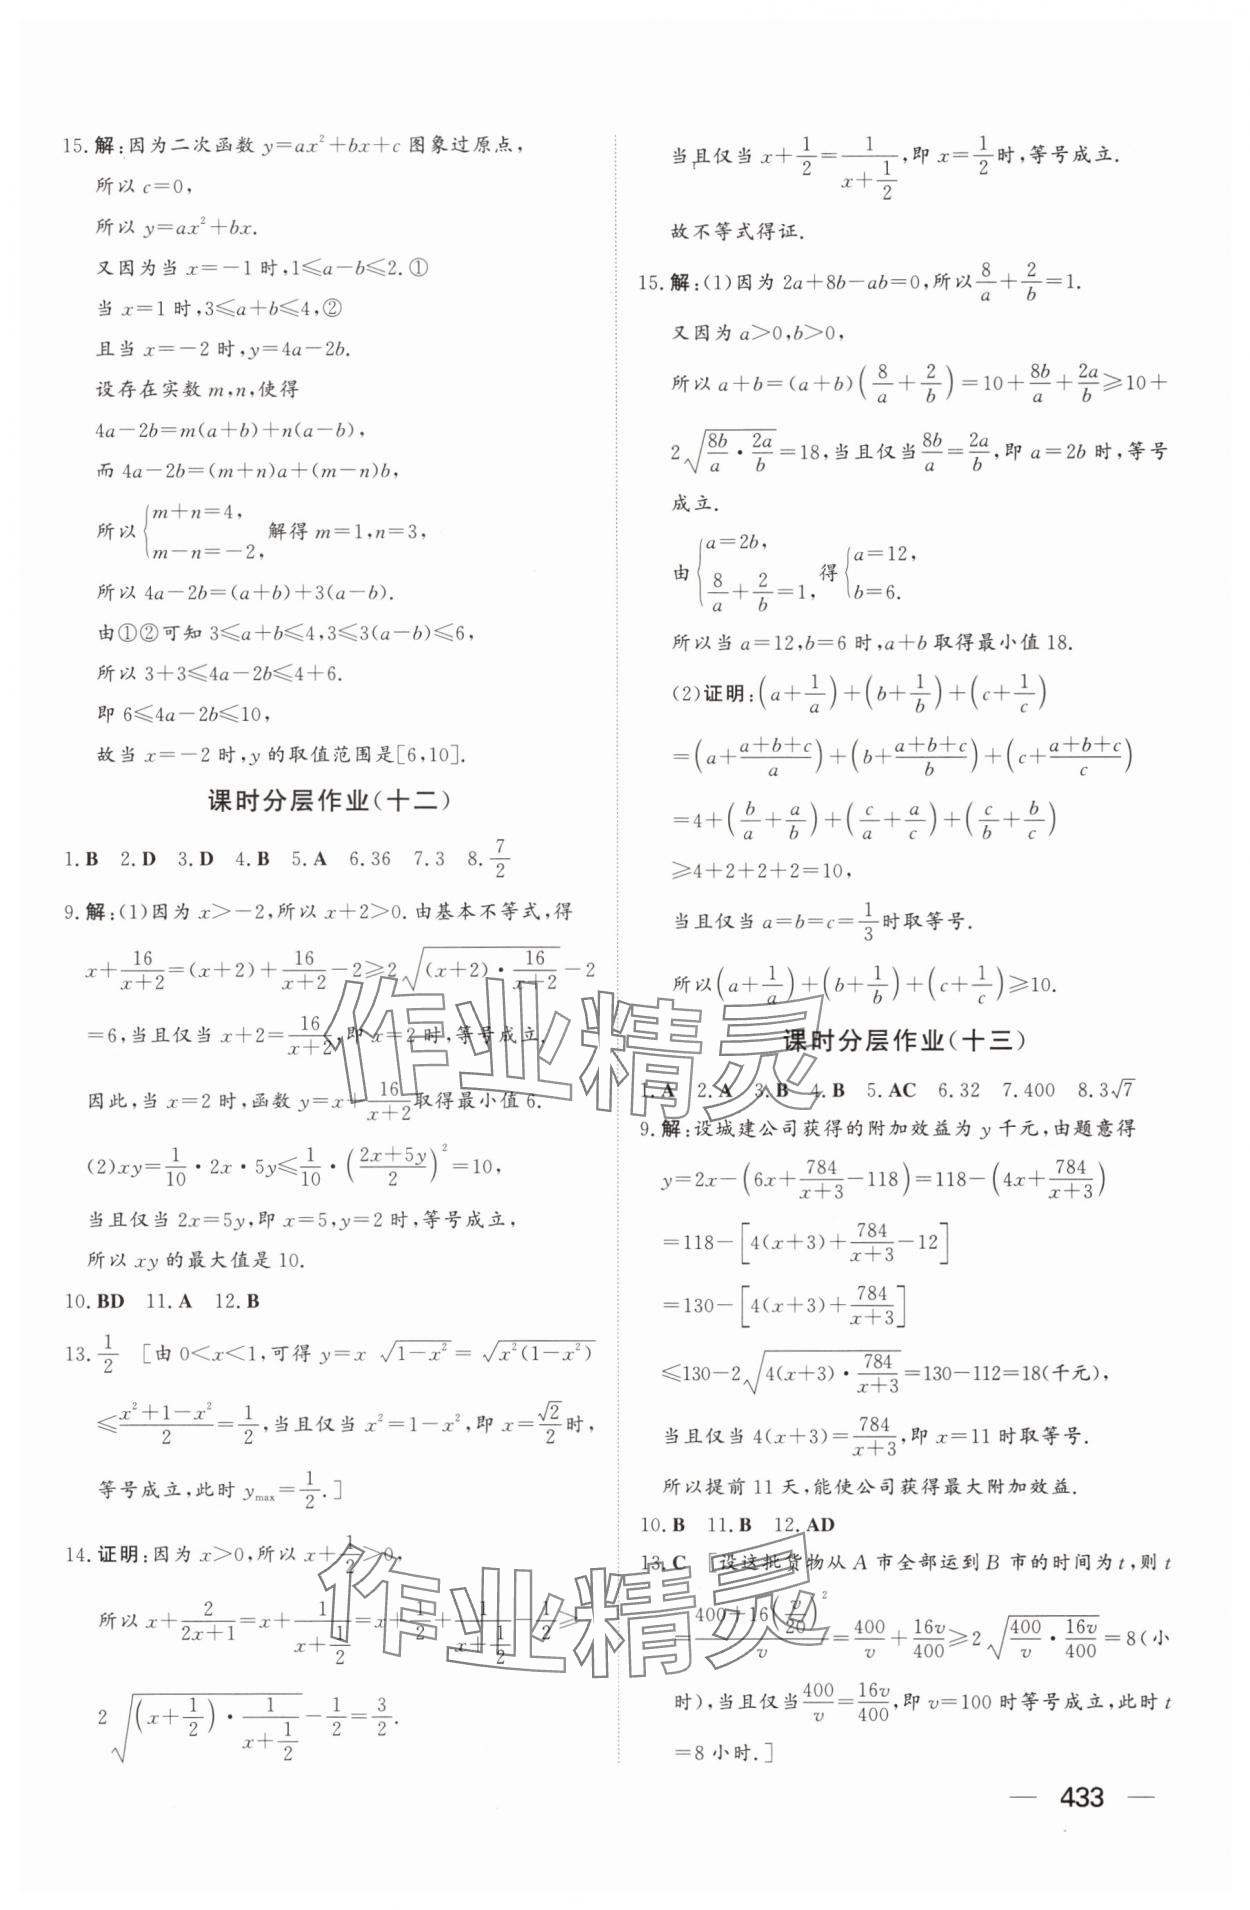 15. 解:因为二次函数 y=ax²+bx+c 图象过原点,
所以 c=0,
所以 y=ax²+bx.
又因为当 x=-1 时,1≤a-b≤2. ①
当 x=1 时,3≤a+b≤4,②
且当 x=-2 时,y=4a-2b.
设存在实数 m,n,使得
4a-2b=m(a+b)+n(a-b),
而 4a-2b=(m+n)a+(m-n)b,
所以{m+n=4, m-n=-2, 解得 m=1,n=3,
所以 4a-2b=(a+b)+3(a-b).
由①②可知 3≤a+b≤4,3≤3(a-b)≤6,
所以 3+3≤4a-2b≤4+6.
即 6≤4a-2b≤10,
故当 x=-2 时,y 的取值范围是[6,10].
课时分层作业(十二)
1. B 2. D 3. D 4. B 5. A 6. 36 7. 3 8. 7/2
9. 解:(1)因为 x>-2,所以 x+2>0. 由基本不等式,得
x+16/(x+2)=(x+2)+16/(x+2)-2≥2√((x+2)·16/(x+2))-2
=6,当且仅当 x+2=16/(x+2),即 x=2 时,等号成立.
因此,当 x=2 时,函数 y=x+16/(x+2)取得最小值 6.
(2)xy=1/10·2x·5y≤1/10·((2x+5y)/2)²=10,
当且仅当 2x=5y,即 x=5,y=2 时,等号成立,
所以 xy 的最大值是 10.
10. BD 11. A 12. B
13. 1/2 [由 0<x<1,可得 y=x√(1-x²)=√(x²(1-x²))
≤(x²+1-x²)/2=1/2,当且仅当 x²=1-x²,即 x=√2/2时,
等号成立,此时 ymax=1/2.]
14. 证明:因为 x>0,所以 x+1/2>0,
所以 x+2/(2x+1)=x+1/(x+1/2)=x+1/2+1/(x+1/2)-1/2≥
2√((x+1/2)·1/(x+1/2))-1/2=3/2.
当且仅当 x+1/2=1/(x+1/2),即 x=1/2时,等号成立.
故不等式得证.
15. 解:(1)因为 2a+8b-ab=0,所以8/a+2/b=1.
又因为 a>0,b>0,
所以 a+b=(a+b)(8/a+2/b)=10+8b/a+2a/b≥10+
2√(8b/a·2a/b)=18,当且仅当8b/a=2a/b,即 a=2b 时,等号
成立.
由{a=2b, 8/a+2/b=1, 得{a=12, b=6.
所以当 a=12,b=6 时,a+b 取得最小值 18.
(2)证明:(a+1/a)+(b+1/b)+(c+1/c)
=(a+(a+b+c)/a)+(b+(a+b+c)/b)+(c+(a+b+c)/c)
=4+(b/a+a/b)+(c/a+a/c)+(c/b+b/c)
≥4+2+2+2=10,
当且仅当 a=b=c=1/3时取等号.
所以(a+1/a)+(b+1/b)+(c+1/c)≥10.
课时分层作业(十三)
1. A 2. A 3. B 4. B 5. AC 6. 32 7. 400 8. 3√7
9. 解:设城建公司获得的附加效益为 y 千元,由题意得
y=2x-(6x+784/(x+3)-118)=118-(4x+784/(x+3))
=118-[4(x+3)+784/(x+3)-12]
=130-[4(x+3)+784/(x+3)]
≤130-2√(4(x+3)·784/(x+3))=130-112=18(千元),
当且仅当 4(x+3)=784/(x+3),即 x=11 时取等号.
所以提前 11 天,能使公司获得最大附加效益.
10. B 11. B 12. AD
13. C [设这批货物从 A 市全部运到 B 市的时间为 t,则 t
=(400+16(v/20)²)/v=400/v+16v/400≥2√(400/v·16v/400)=8(小
时),当且仅当400/v=16v/400,即 v=100 时等号成立,此时 t
=8 小时.]
— 433 —
作业精灵
作业精灵